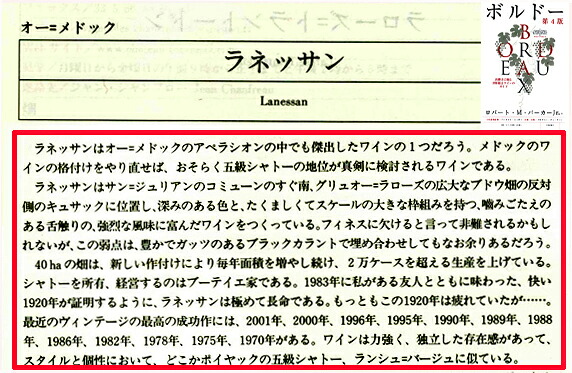 オー=メドック
ラネッサン
Lanessan
ボルドー
第4版
BORDEAUX
ロバート・M・パーカーJr.
ラネッサンはオー=メドックのアペラシオンの中でも傑出したワインの1つだろう。メドックのワ
インの格付けをやり直せば、おそらく五級シャトーの地位が真剣に検討されるワインである。
ラネッサンはサン=ジュリアンのコミューンのすぐ南、グリュオー=ラローズの広大なブドウ畑の反対
側のキュサックに位置し、深みのある色と、たくましくてスケールの大きな枠組みを持つ、噛みごたえの
ある舌触りの、強烈な風味に富んだワインをつくっている。フィネスに欠けると言って非難されるかもし
れないが、この弱点は、豊かでガッツのあるブラックカラントで埋め合わせしてもなお余りあるだろう。
40haの畑は、新しい作付けにより毎年面積を増やし続け、2万ケースを超える生産を上げている。
シャトーを所有、経営するのはブーテイエ家である。1983年に私がある友人とともに味わった、快い
1920年が証明するように、ラネッサンは極めて長命である。もっともこの1920年は疲れていたが……。
最近のヴィンテージの最高の成功作には、2001年、2000年、1996年、1995年、1990年、1989年、1988
年、1986年、1982年、1978年、1975年、1970年がある。ワインは力強く、独立した存在感があって、
スタイルと個性において、どこかポイヤックの五級シャトー、ランシュ=バージュに似ている。